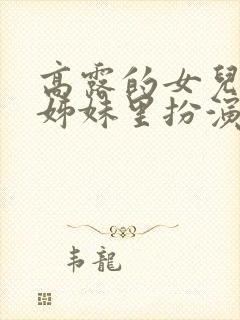 高露的女兒
姊妹里扮演
韦龍